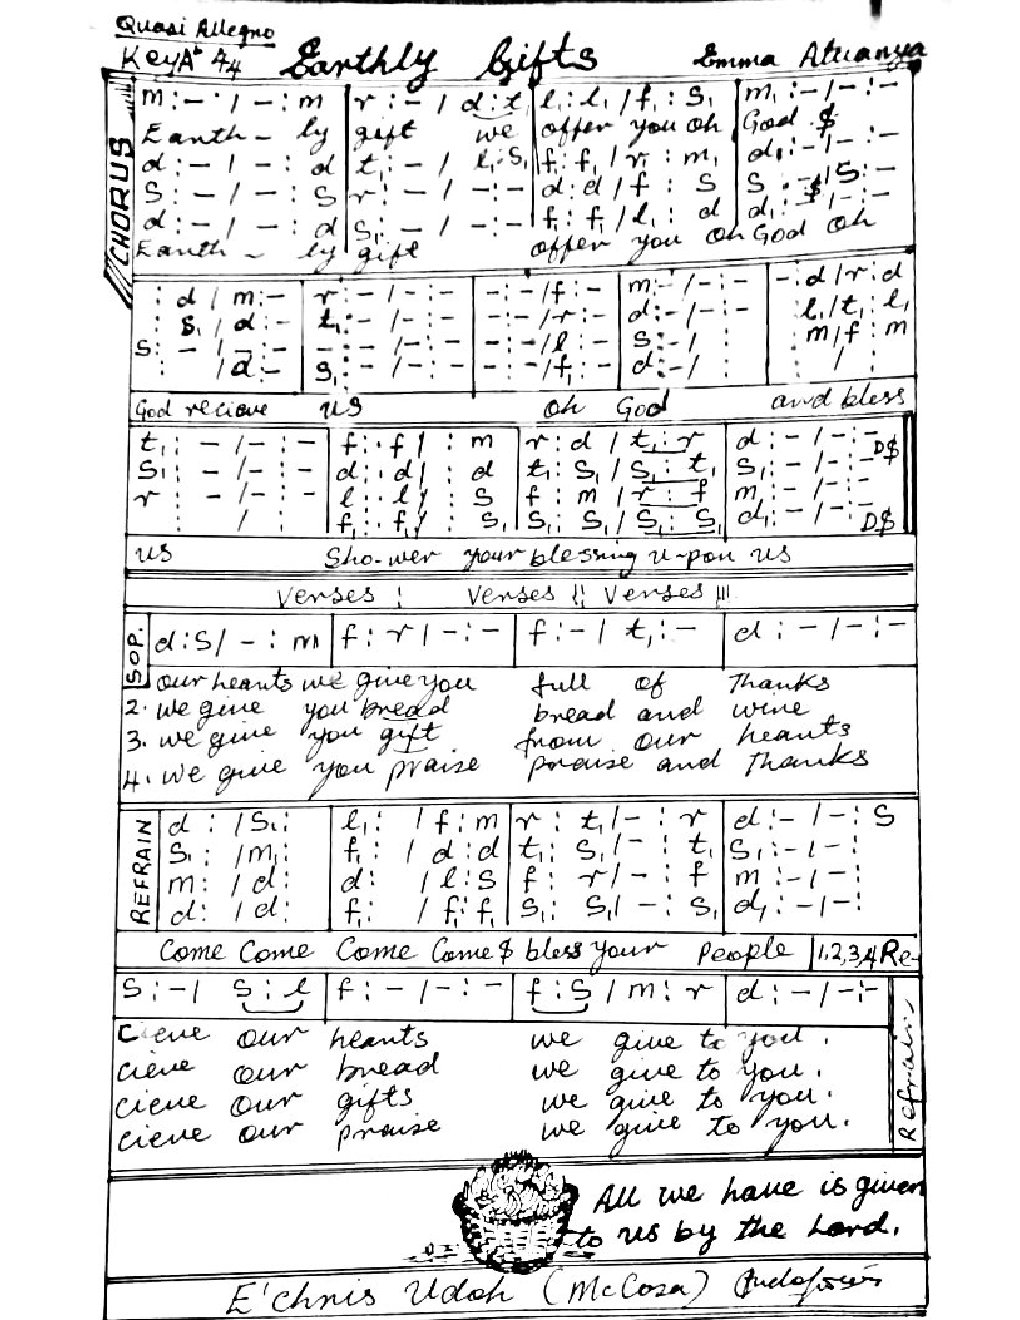 Quasi Allegro
Key A♭ 4/4 Earthly Gifts Emma Atuanya
CHORUS
m : – / – : m | r : – / d : t, | l, : l, / f, : s, | m, : – / – : –
Earth – ly gift we offer you oh God $
d : – / – : d | t, : – / l, : s, | f, : f, / r, : m, | d, : – / – : –
S : – / – : S | r : – / – : – | d : d / f : S | S : – / S : –
d : – / – : d | s, : – / – : – | f, : f, / l, : d | d, : – / – : –
Earth – ly gift offer you oh God oh
: d / m : – | r : – / – : – | – : – / f : – | m : – / – : – | – : d / r : d
: s, / d : – | t, : – / – : – | – : – / r : – | d : – / – : – | : l, / t, : l,
S : – / – : – | – : – / – : – | – : – / l : – | S : – / | : m / f : m
: / d : – | s, : – / – : – | – : – / f, : – | d : – / | : / :
God recieve us oh God and bless
t, : – / – : – | f : . f / : m | r : d / t, : r | d : – / – : – D$
s, : – / – : – | d : . d / : d | t, : s, / s, : t, | s, : – / – : –
r : – / – : – | l : . l / : S | f : m / r : f | m : – / – : –
: / : | f, : . f, / : s, | s, : s, / s, : s, | d, : – / – : – D$
us Sho-wer your blessing u-pon us
Verses ¦ Verses ¦¦ Verses ¦¦¦
SOP. d : S / – : m | f : r / – : – | f : – / t, : – | d : – / – : –
our hearts we give you full of Thanks
2. we give you bread bread and wine
3. we give you gift from our hearts
4. we give you praise praise and Thanks
REFRAIN
d : / s, : | l, : / f : m | r : t, / – : r | d : – / – : S
s, : / m, : | f, : / d : d | t, : s, / – : t, | s, : – / – :
m : / d : | d : / l : S | f : r / – : f | m : – / – :
d : / d : | f, : / f, : f, | s, : s, / – : s, | d, : – / – :
Come Come Come Come $ bless your People | 1,2,3,4 Re-
S : – / S : l | f : – / – : – | f : S / m : r | d : – / – : –
cieve our hearts we give to you.
cieve our bread we give to you.
cieve our gifts we give to you.
cieve our praise we give to you.
Refrain
All we have is given
to us by the Lord.
E'chris Udoh (McCosa)